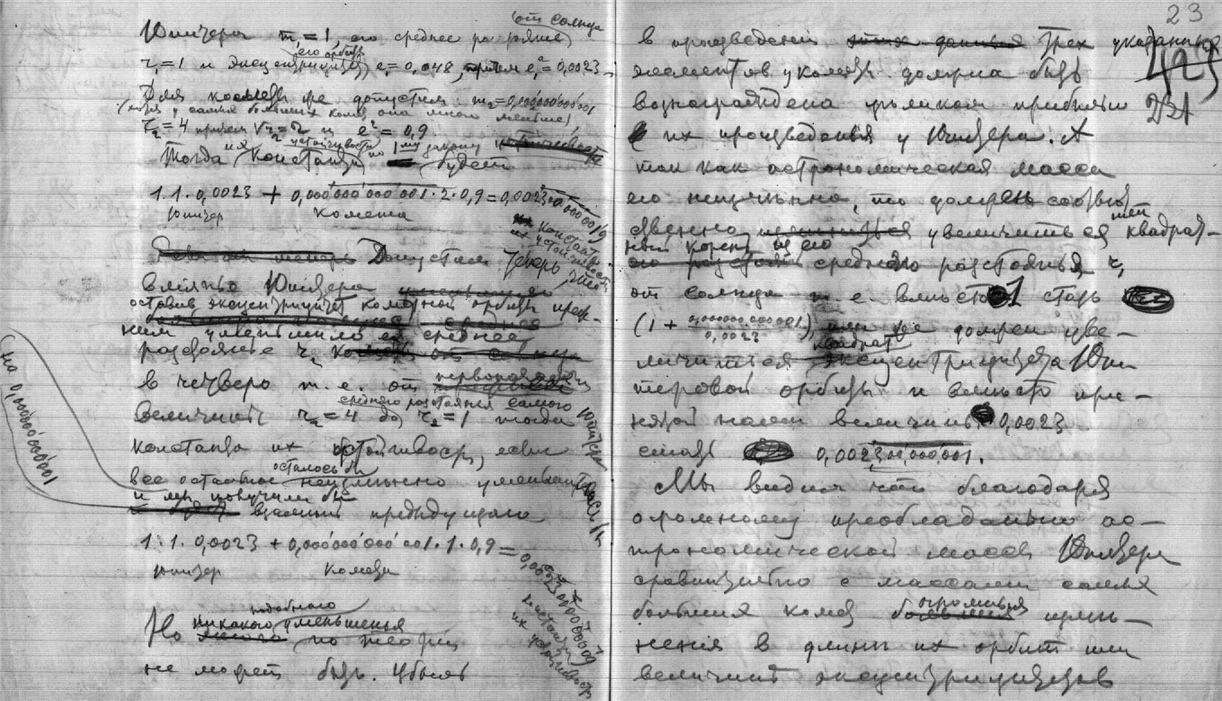 от солнца
Юпитера m₁=1, его среднее разстояніе
его орбиты
r₁=1 и эксцентрицитет e₁=0,048, причем e₁²=0,0023
Для кометы же допустим: m₂=0,000000000001
(хотя у самых больших комет она много меньше)
r₂=4 причем √r₂=2 и e²=0,9.
Тогда Константа их устойчивости по 1му закону будет
1.1.0,0023 + 0,000000000001.2.0,9=0,0023
Юпитер комета
Допустим теперь, что
влиянье Юпитера
оставив эксцентрицитет кометной орбиты преж-
ним уменьшило ее среднее
разстояние r₂
в четверо т.е. от первоначальной
среднего разстояния самого Юпитера
величины r₂=4 до r₂=1 тогда
константа их устойчивости, если
осталось бы
все остальное неизменно уменьшилась бы
на 0,000000000001
и мы получили бы
взамен предыдущаго
1.1.0,0023 + 0,000000000001.1.0,9=
Юпитер Комета
константа их устойчивости
подобного
Но никакого уменьшенья по теории
не может быть. Убыль
23
в произведении трех указанных
элементов у кометы должна быть
вознаграждена прибылью
231
их произведенья у Юпитера. А
так как астрономическая масса
его неизменна, то должен соответ-
ственно увеличиться квадрат-
ный корень из его
среднего разстоянья r₁
от солнца т.е. вместо 1 стать
(1 + 0,000000000001/0,0023), или же должен уве-
личиться квадрат эксцентрицитета Юпи-
теровой орбиты и вместо при-
нятой нами величины 0,0023
стать 0,002300000001.
Мы видим что благодаря
огромному преобладанью ас-
трономической массы Юпитера
сравнительно с массами самых
больших комет огромныя изме-
ненія в длине их орбит или
величине эксцентрицитетов